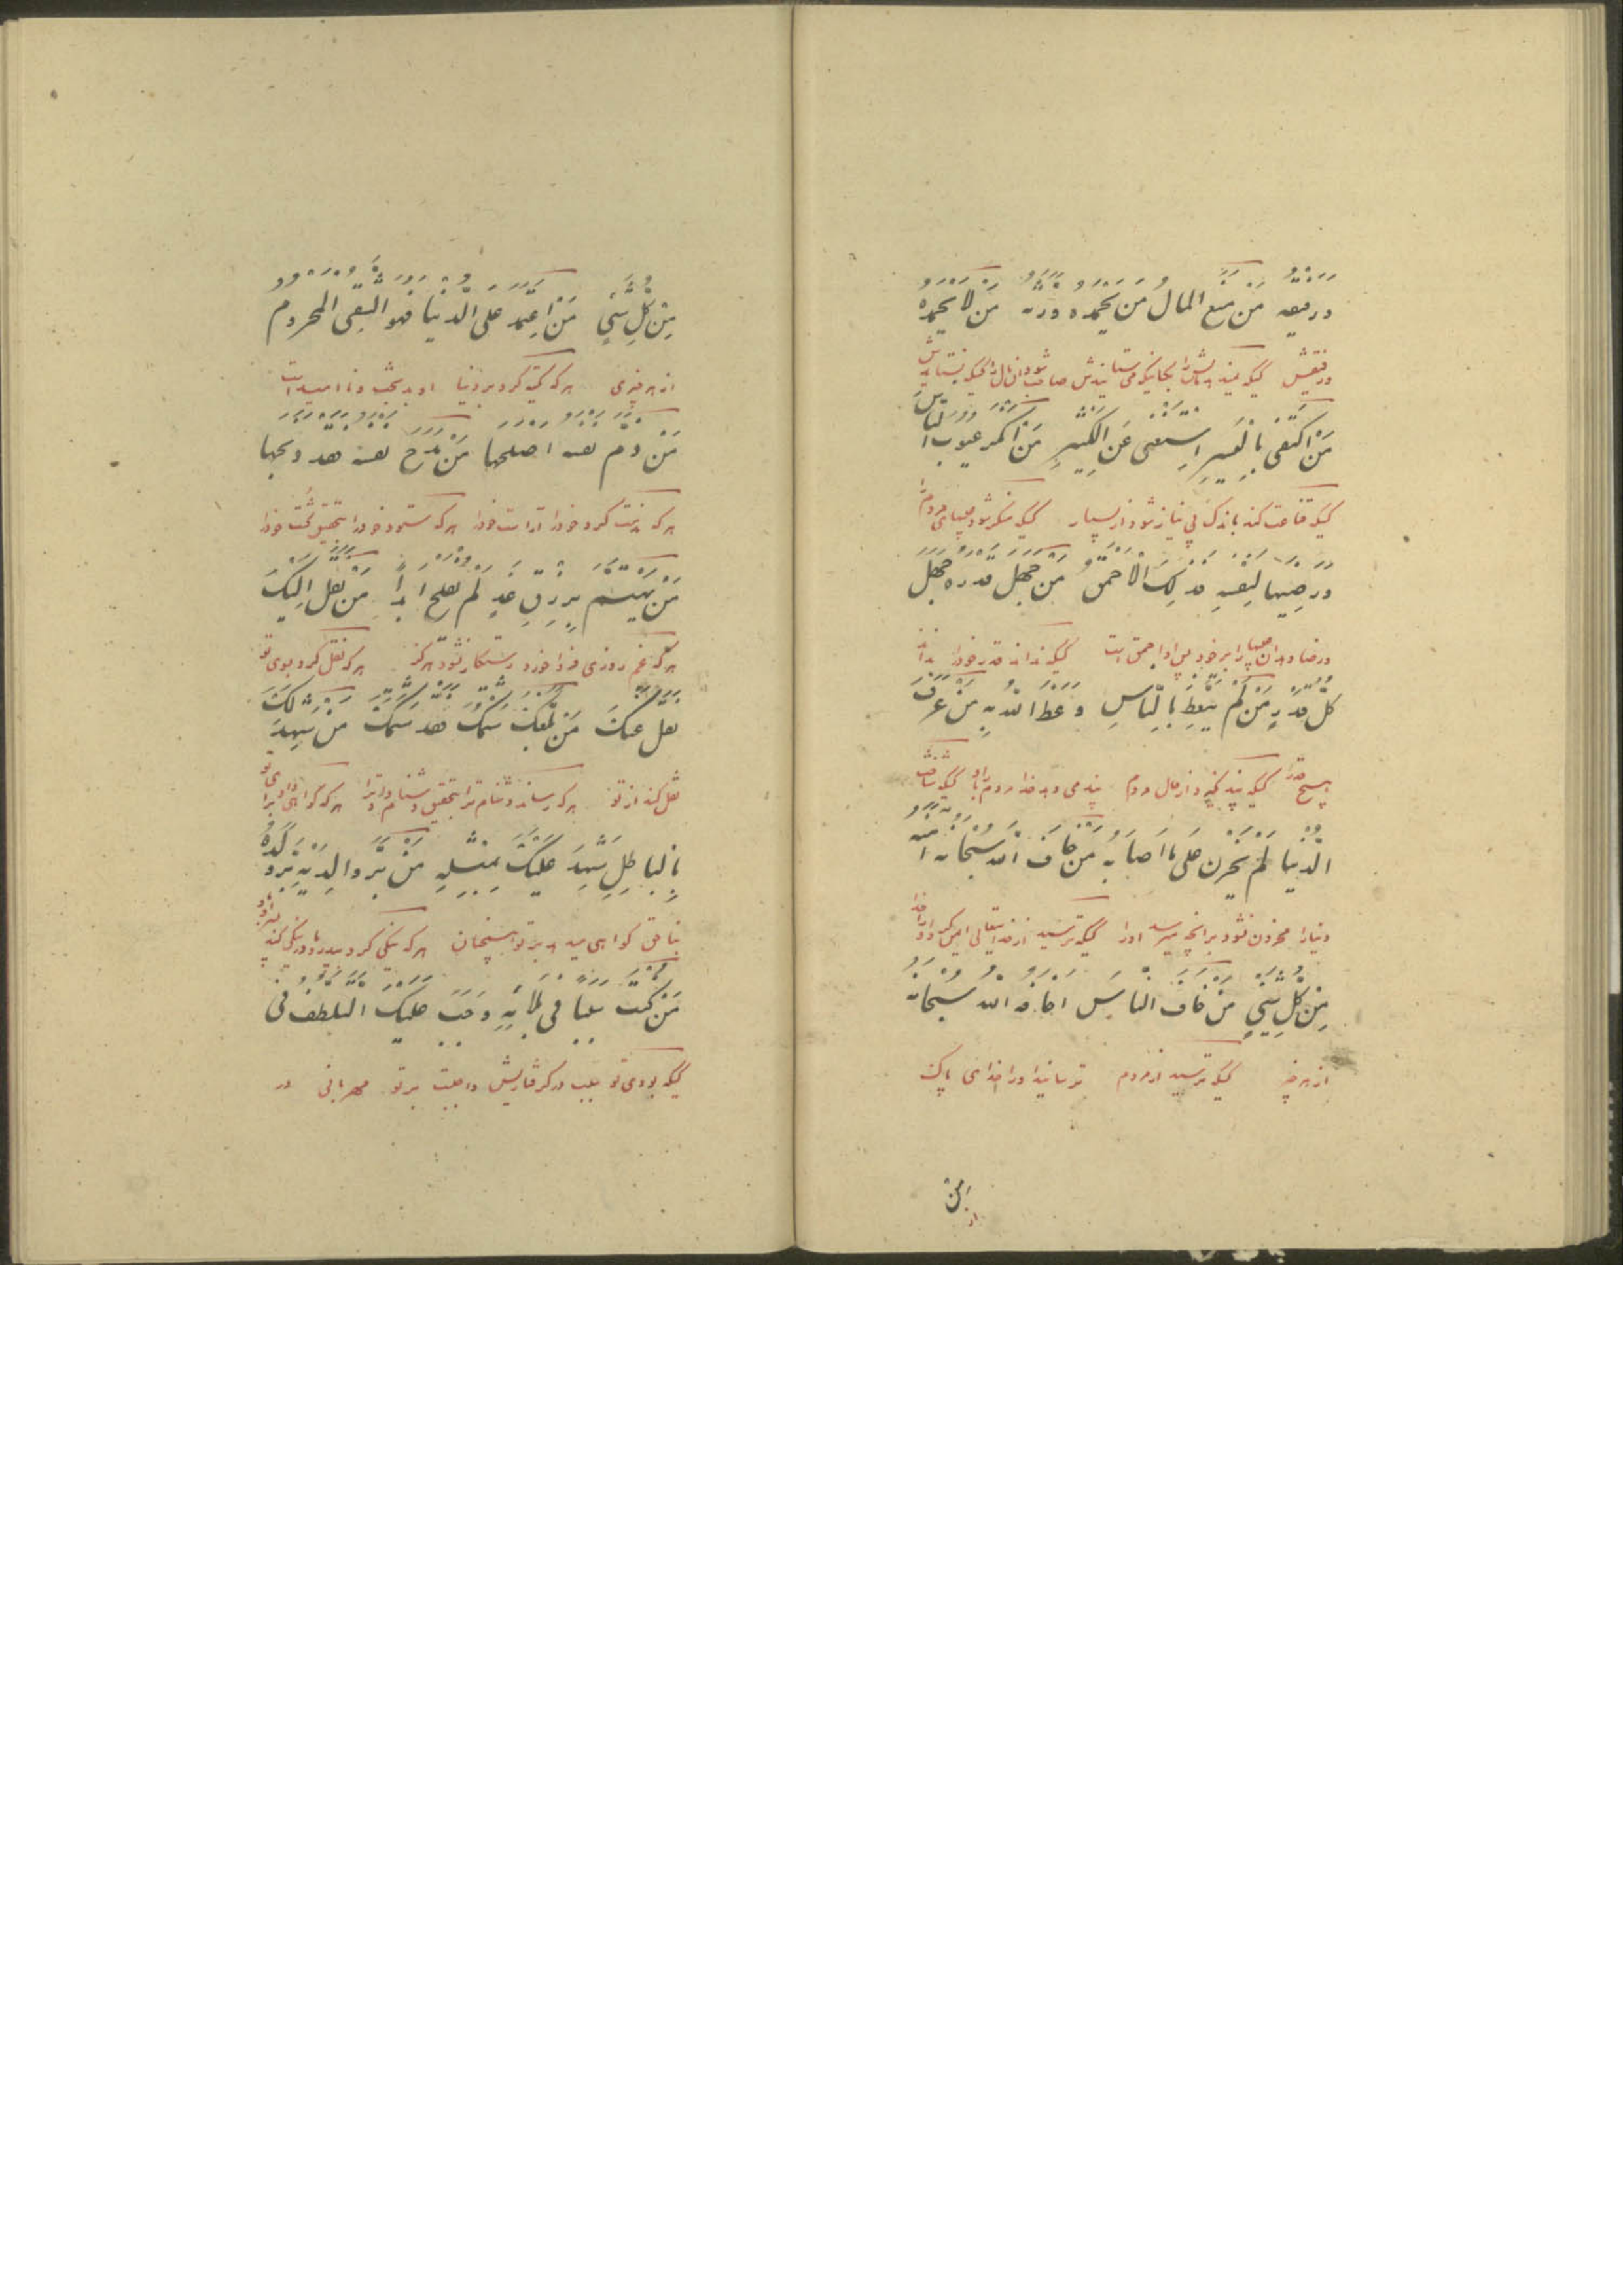 ورفیقه مَن منع المالَ مَن یحمده ورثه مَن لا یحمده
ورفیقش کسیکه
مَن اکتفی بالیسیر استغنی عن الکثیر مَن انکر عیوب الناس
کسیکه قناعت کند باندک بی نیاز شود از بسیار کسیکه منکر شود عیبهای مردم را
ورضیها لنفسه فذلک الاحمق مَن جهل قدره جهل
ورضا دهد آن عیبها را برخود پس او احمق است کسیکه نداند قدر خود را نداند
کلّ قدر مَن لم یتعظ بالناس وعظ الله به مَن عرف
هیچ قدر را کسیکه پند نگیرد از حال مردم پند می دهد خدا مردم را باو کسیکه شناخت
الدنیا لم یحزن علی ما اصابه مَن خاف الله سبحانه آمنه
دنیا را محزون نشود برآنچه میرسد اورا کسیکه ترسید از خدایتعالی ایمن کرد اورا خدا
مِن کلّ شیءٍ مَن خاف الناس اخافه الله سبحانه
از هر چیز کسیکه ترسید از مردم ترسانید اورا خدای پاک
من
از
مِن کلّ شیءٍ مَن اعتمد علی الدنیا فهو الشقی المحروم
از هر چیزی هر که تکیه کرد بر دنیا او بدبخت و ناامید است
مَن ذم نفسه اصلحها مَن مدح نفسه فقد ذبحها
هر که مذمت کرد خود را آراست خود را هر که ستود خود را بتحقیق کشت خود را
مَن یهتم برزق غدٍ لم یفلح ابداً مَن نقل الیک
هر که غم روزی فردا خورد رستکار نشود هرگز هر که نقل کرد بسوی تو
نقل عنک مَن بلغک شتمک فقد شتمک مَن شهد لک
نقل کند از تو هر که رساند دشنام ترا بتحقیق دشنام داد ترا هر که گواهی داد برای تو
بالباطل شهد علیک بمثله مَن بر والدیه بره ولده
بناحق گواهی میدهد بر تو همچنان هر که نیکی کرد بپدر و مادر نیکی کند باو پسر او
مَن کنت سبباً فی بلائه وجب علیک التلطف فی
کسیکه بودی تو سبب در گرفتاریش واجبست بر تو مهربانی در